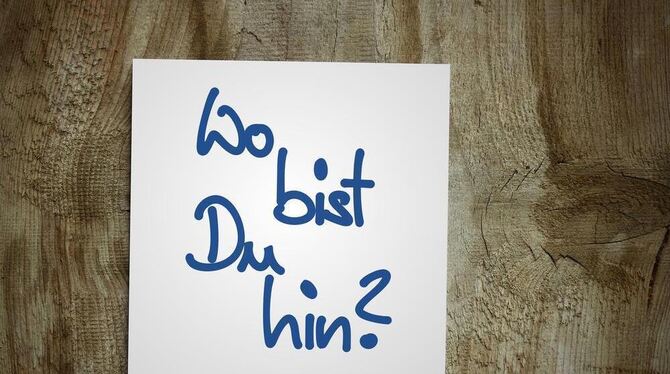 Wo
bist
Du
hin?